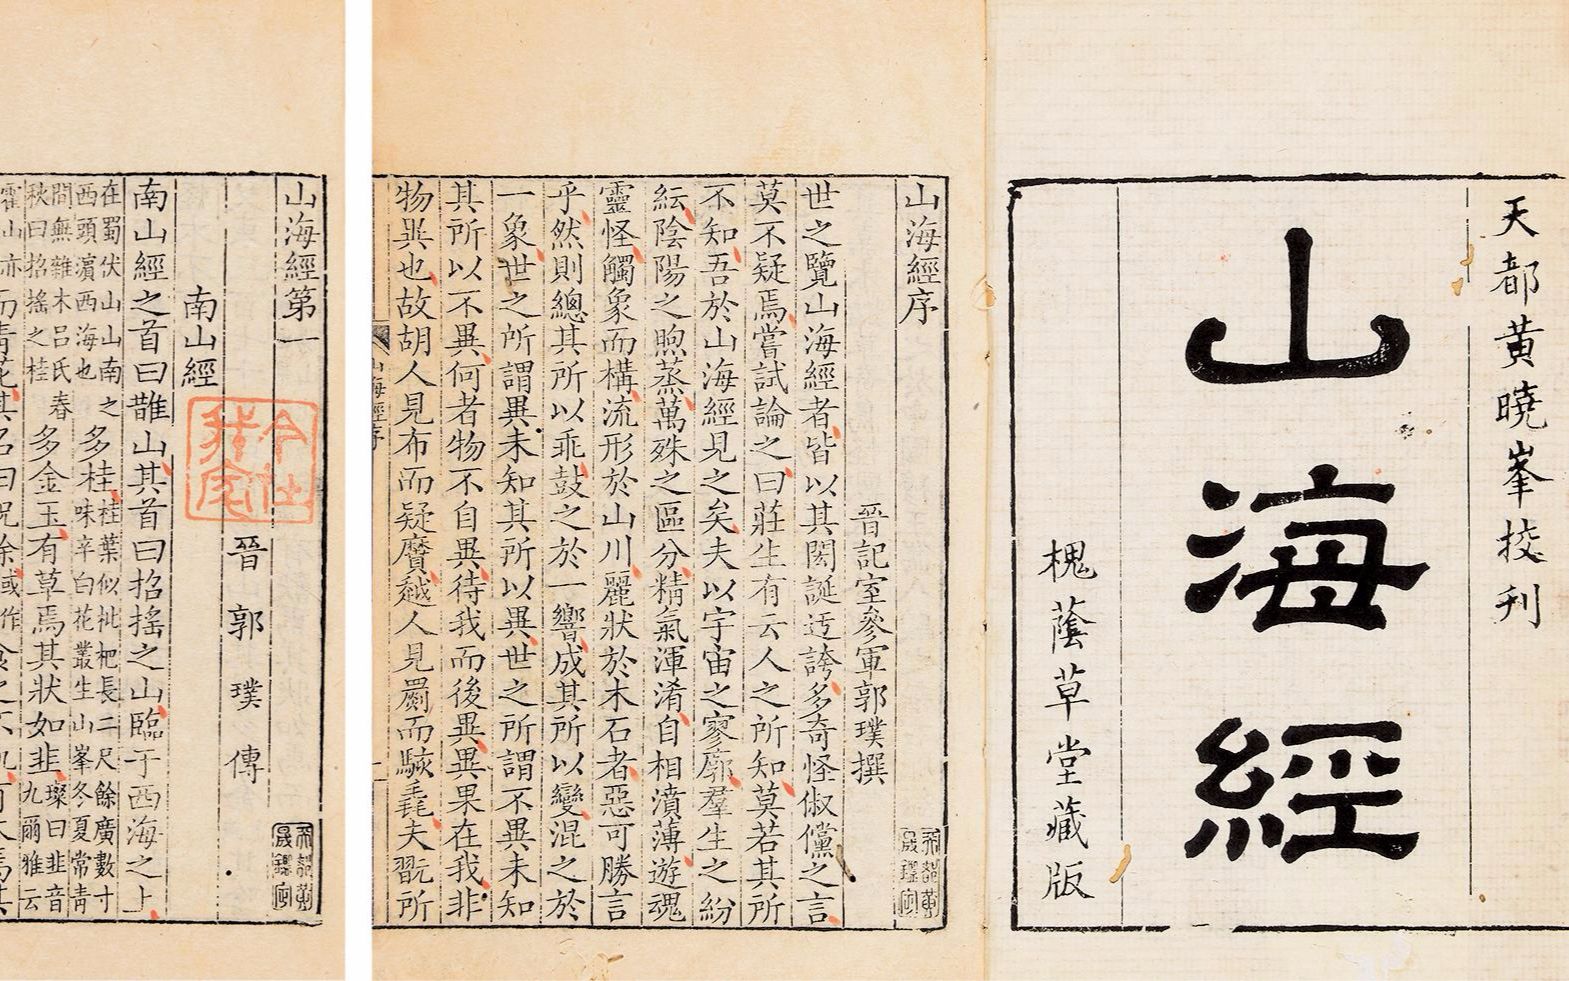 天都黄曉峯挍刋
山海經
槐蔭草堂藏版
山海經序
晉記室參軍郭璞撰
世之覽山海經者皆以其閎誕迃誇多奇怪俶儻之言
莫不疑焉嘗試論之曰莊生有云人之所知莫若其所
不知吾於山海經見之矣夫以宇宙之寥廓羣生之紛
紜陰陽之煦蒸萬殊之區分精氣渾淆自相濆薄遊魂
靈怪觸象而構流形於山川麗狀於木石者惡可勝言
乎然則總其所以乖鼓之於一響成其所以變混之於
一象世之所謂異未知其所以異世之所謂不異未知
其所以不異何者物不自異待我而後異異果在我非
物異也故胡人見布而疑黂越人見罽而駭毳夫翫所
山海經序
一
山海經第一
晉郭璞傳
南山經
南山經之首曰䧿山其首曰招搖之山臨于西海之上
在蜀伏山山南之西頭濱西海也多桂桂葉似枇杷長二尺餘廣數寸味辛白花叢生山峯冬夏常靑
間無雜木呂氏春秋曰招搖之桂多金玉有草焉其狀如韭璨曰韭音九爾雅云
霍山亦而靑花其名曰祝餘或作食之不飢有木焉其